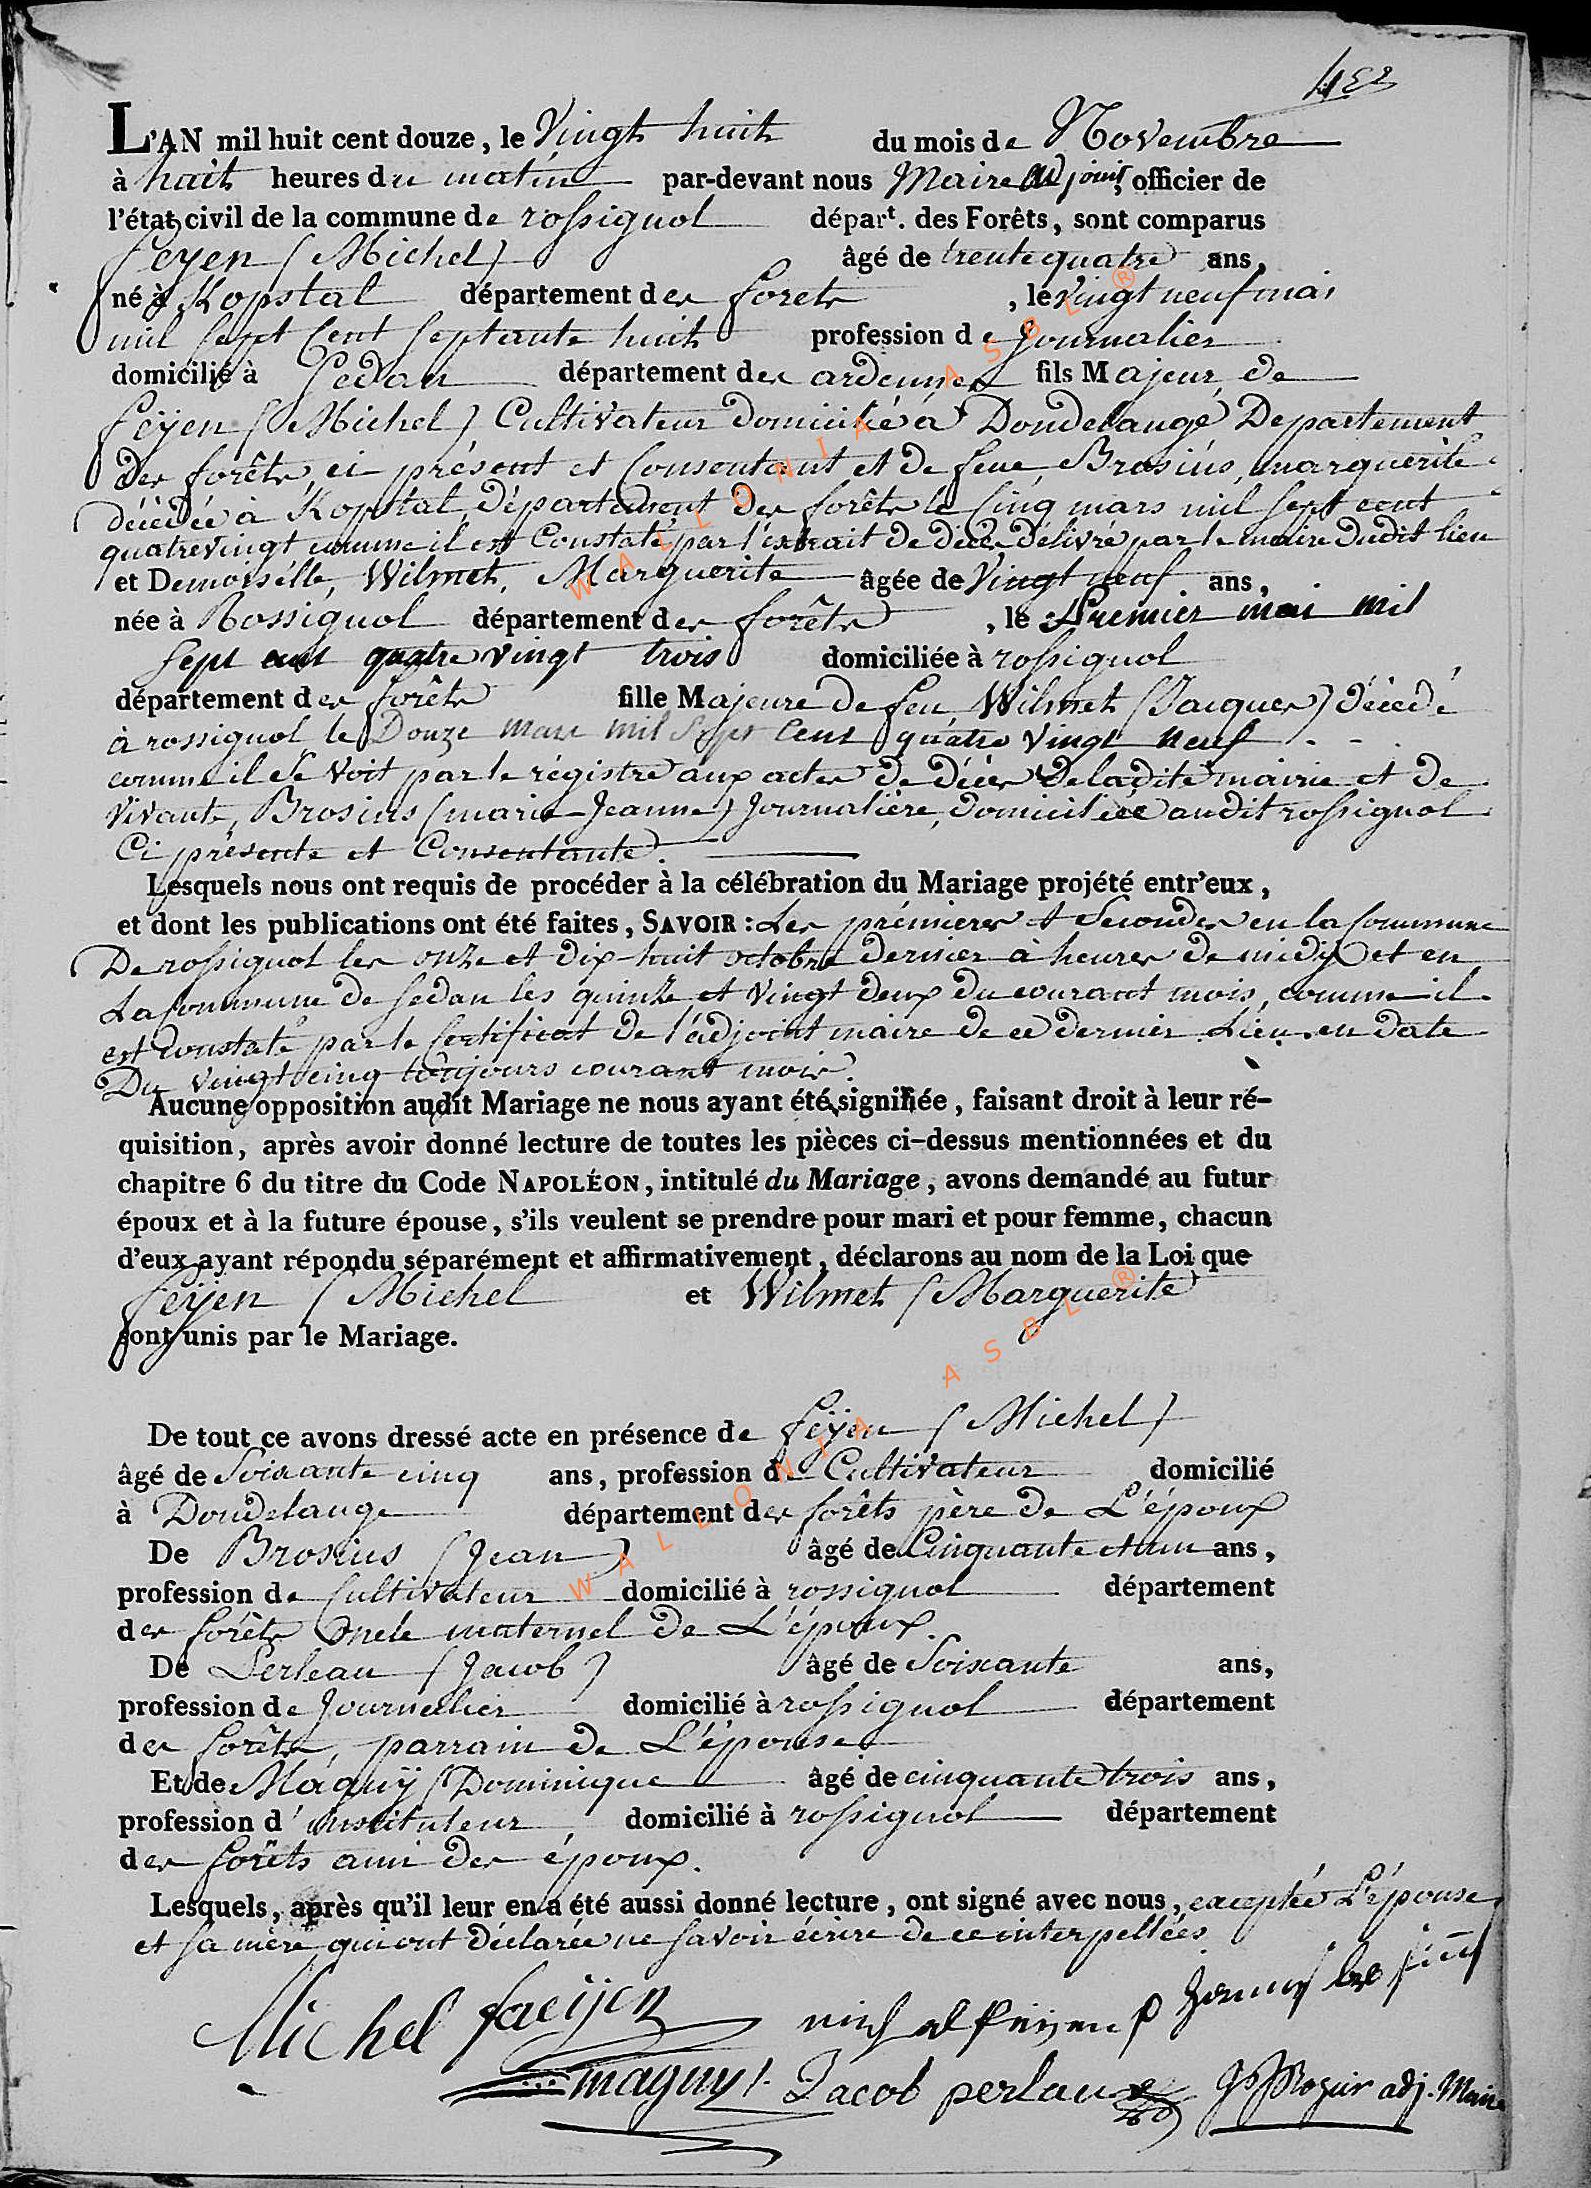 452
L'AN mil huit cent douze, le Vingt huit du mois de Novembre
à huit heures du matin par-devant nous Maire adjoint, officier de
l'état civil de la commune de rossignol départ. des Forêts, sont comparus
feyen (Michel) âgé de trente quatre ans,
né à Kopstal département des forets, le vingt neuf mai
mil sept Cent septante huit profession de Journalier
domicilié à Sedan département des ardennes fils Majeur de
feÿen (Michel) Cultivateur domicilié à Dondelange Departement
des forêts, ci présent et Consentant et de feue Brosius, marguerite
décédée à Kopstal, Département des forêts le Cinq mars mil sept cent
quatrevingt comme il est Constaté par l'extrait de décès délivré par le maire dudit lieu
et Demoiselle, Wilmet, Marguerite âgée de Vingt neuf ans,
née à Rossignol département des forêts, le Premier mai mil
sept cent quatre vingt trois domiciliée à rossignol
département des forêts fille Majeure de feu Wilmet (Jacques) décédé
à rossignol le Douze Mars mil Sept Cent quatre vingt neuf
comme il se voit par le régistre aux actes de décès de ladite mairie et de
vivante, Brosius (marie Jeanne) Journalière, domiciliée audit rossignol
Ci présente et Consentante.
Lesquels nous ont requis de procéder à la célébration du Mariage projété entr'eux,
et dont les publications ont été faites, SAVOIR: Les prémieres et Secondes en la Commune
De rossignol les onze et dix-huit octobre dernier à heures de midy et en
La Commune de Sedan les quinze et vingt deux du courant mois, comme il
est constaté par le Certificat de l'adjoint maire de ce dernier Lieu en date
Du vingt cinq toujours courant mois.
Aucune opposition audit Mariage ne nous ayant été signifiée, faisant droit à leur ré-
quisition, après avoir donné lecture de toutes les pièces ci-dessus mentionnées et du
chapitre 6 du titre du Code NAPOLÉON, intitulé du Mariage, avons demandé au futur
époux et à la future épouse, s'ils veulent se prendre pour mari et pour femme, chacun
d'eux ayant répondu séparément et affirmativement, déclarons au nom de la Loi que
feÿen (Michel et Wilmet (Marguerite
sont unis par le Mariage.
De tout ce avons dressé acte en présence de feÿen (Michel)
âgé de Soixante cinq ans, profession de Cultivateur domicilié
à Dondelange département des forêts père de L'époux
De Brosius (Jean) âgé de Cinquante et un ans,
profession de Cultivateur domicilié à rossignol département
des forêts Oncle maternel de L'époux.
De Perleau (Jacob) âgé de Soixante ans,
profession de Journellier domicilié à rossignol département
des forêts, parrain de L'épouse
Et de Maguÿ (Dominique âgé de cinquante trois ans,
profession d'instituteur domicilié à rossignol département
des forêts ami des époux.
Lesquels, après qu'il leur en a été aussi donné lecture, ont signé avec nous, exceptée L'épouse
et sa mère qui ont déclarée ne savoir écrire de ce interpellées
Michel faeijen
maguy Jacob perlau adj. Maire
WALLONIA ASBL ®
WALLONIA ASBL ®